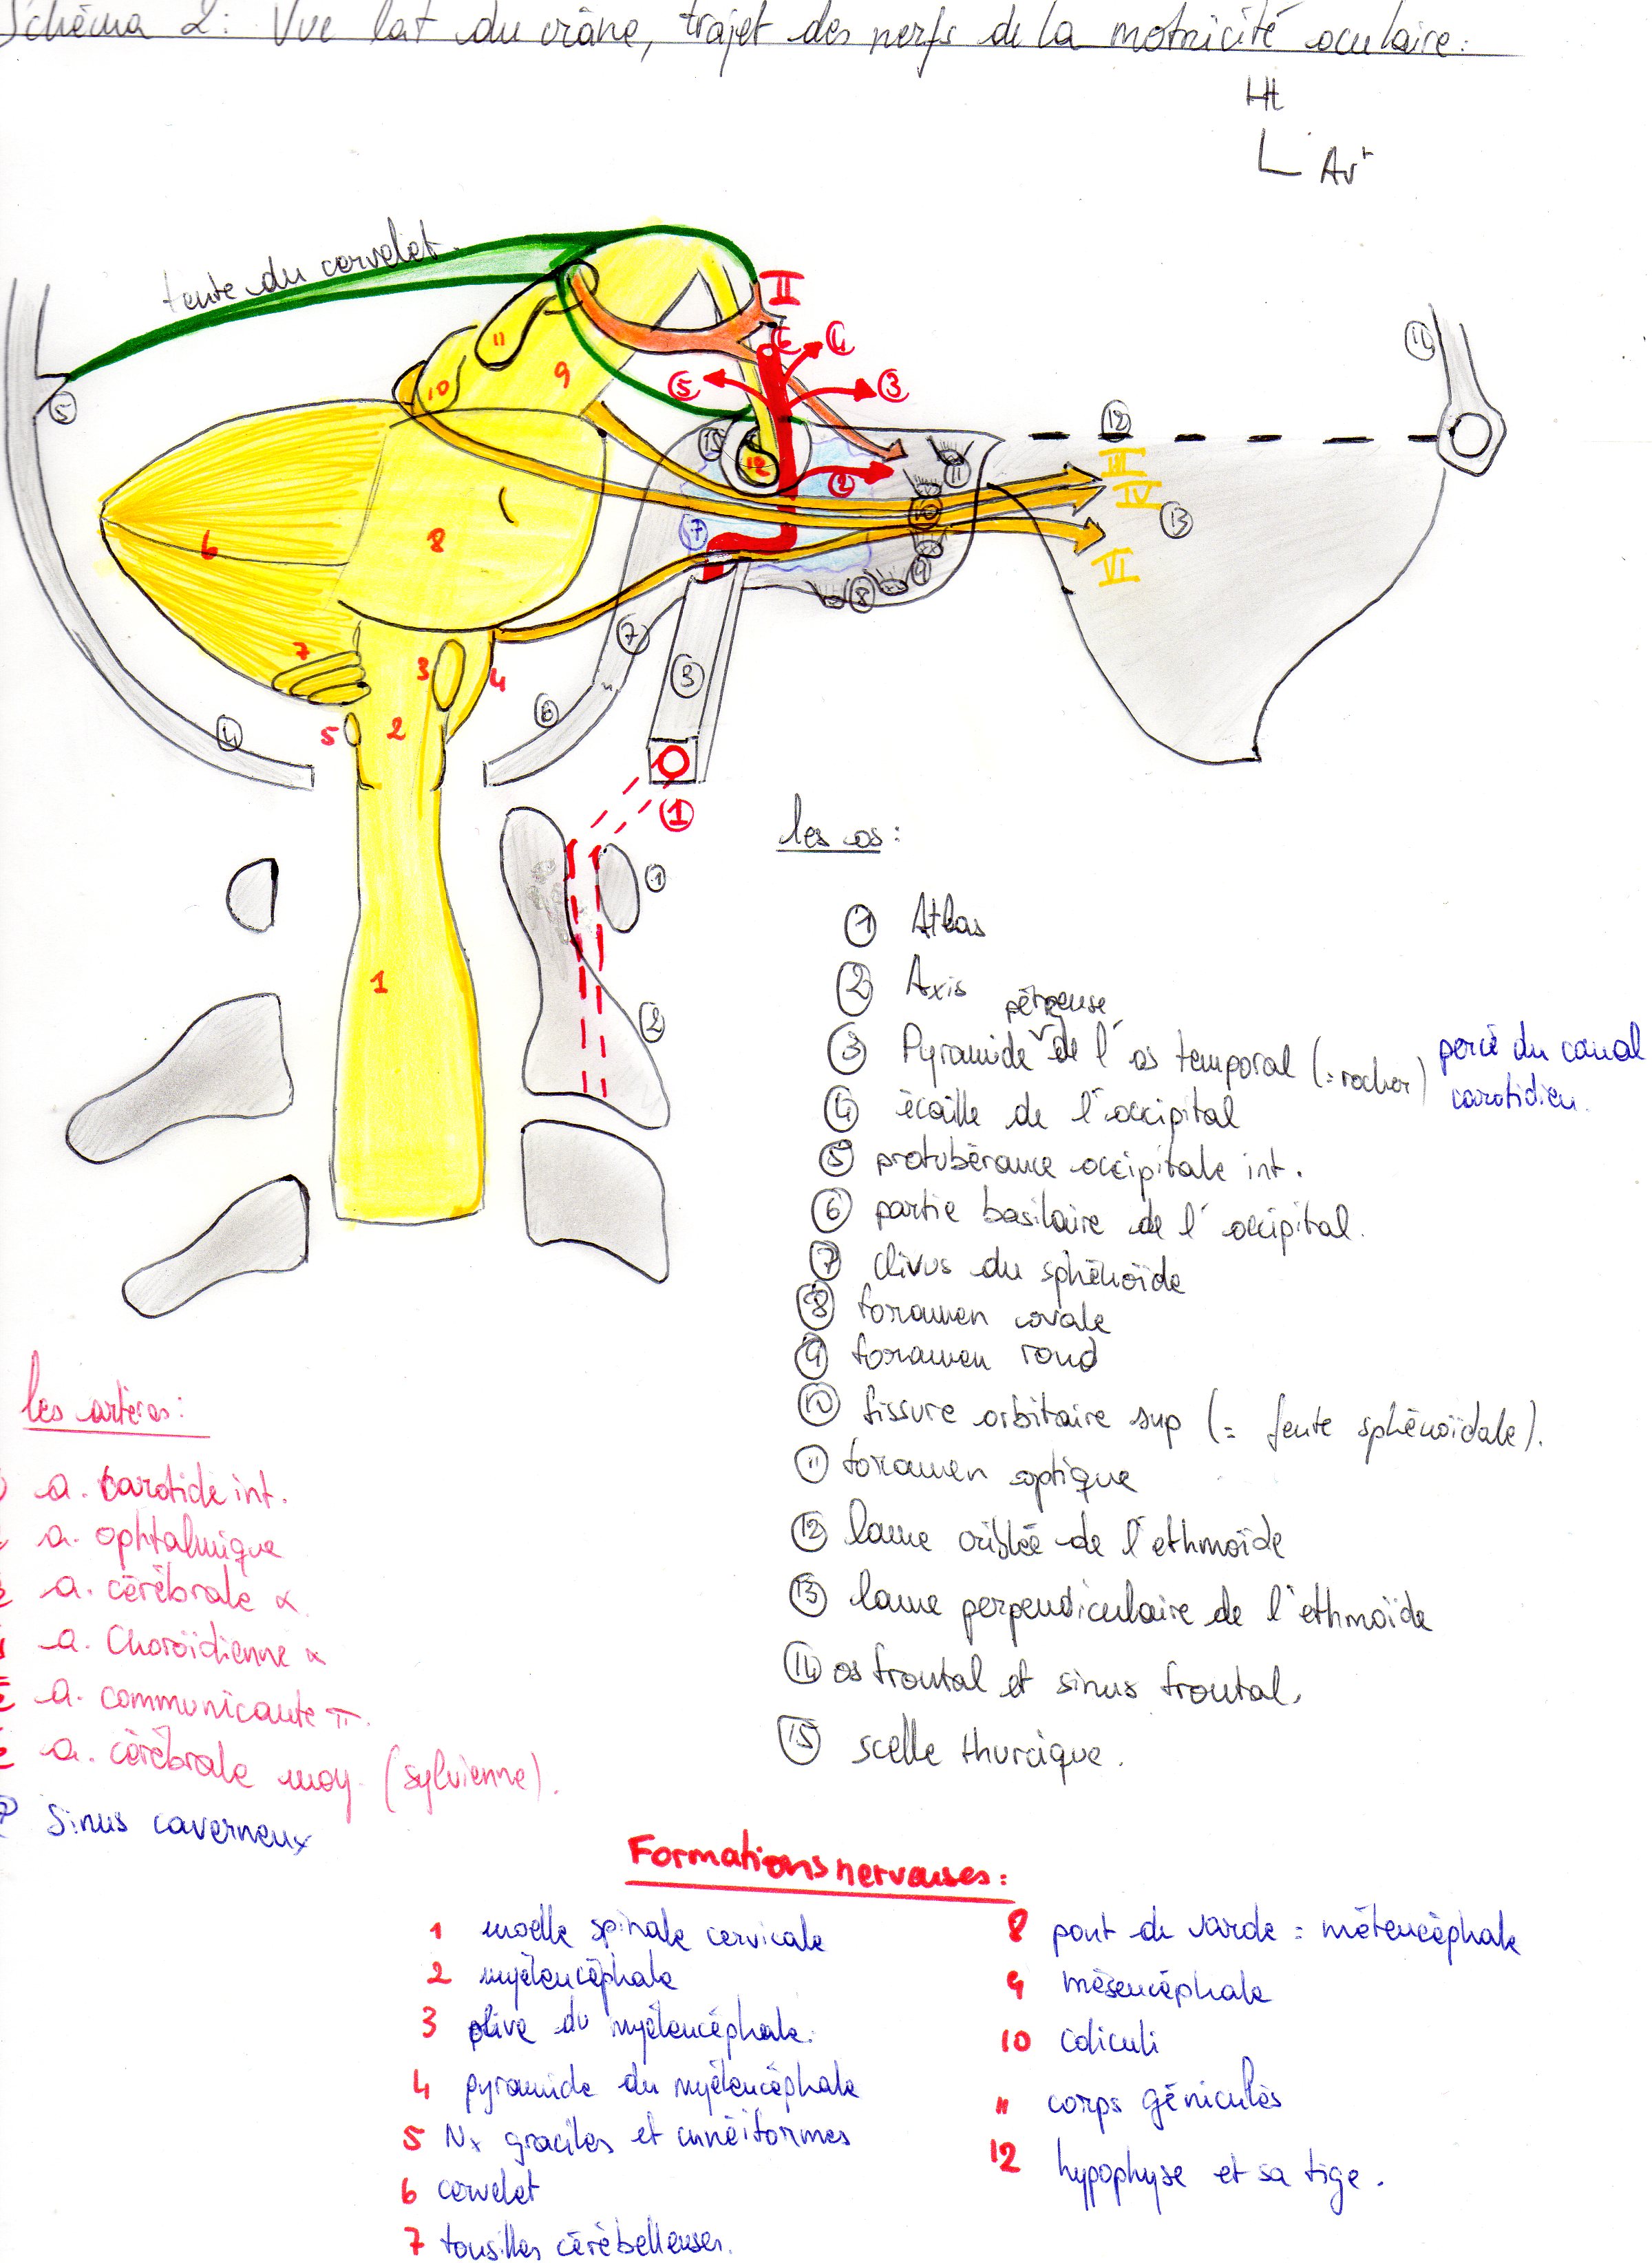 Schéma 2: Vue lat du crâne, trajet des nerfs de la motricité oculaire:
Ht
Avt
tente du cervelet
II
III
IV
VI
les os:
① Atlas
② Axis
③ Pyramide pétreuse de l'os temporal (=rocher) percé du canal carotidien.
④ écaille de l'occipital
⑤ protubérance occipitale int.
⑥ partie basilaire de l'occipital.
⑦ clivus du sphénoïde
⑧ foramen ovale
⑨ foramen rond
⑩ fissure orbitaire sup (= fente sphénoïdale).
⑪ foramen optique
⑫ lame criblée de l'ethmoïde
⑬ lame perpendiculaire de l'ethmoïde
⑭ os frontal et sinus frontal.
⑮ scelle thurcique.
les artères:
a. carotide int.
a. ophtalmique
a. cérébrale α
a. Choroïdienne α
a. communicante π.
a. cérébrale moy (sylvienne).
Sinus caverneux
Formations nerveuses:
1 moelle spinale cervicale
2 myélencéphale
3 olive du myélencéphale.
4 pyramide du myélencéphale
5 Nx graciles et cunéiformes
6 cervelet
7 tonsilles cérébelleuses.
8 pont de varole = métencéphale
9 mésencéphale
10 coliculi
11 corps géniculés
12 hypophyse et sa tige.